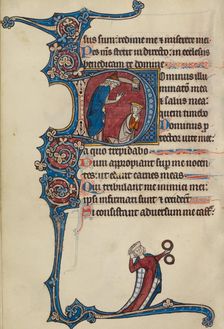 sus sum: redime me & miserere mei
Pes meus stetit in directo: in ecclesiis
benedicam te domine
Dominus illu
minatio mea
& salus mea
quem timebo
Dominus p
tector uite mee
a quo trepidabo
Dum appropiant super me nocen
tes: ut edant carnes meas
Qui tribulant me inimici mei:
ipsi infirmati sunt & ceciderunt
Si consistant aduersum me cast